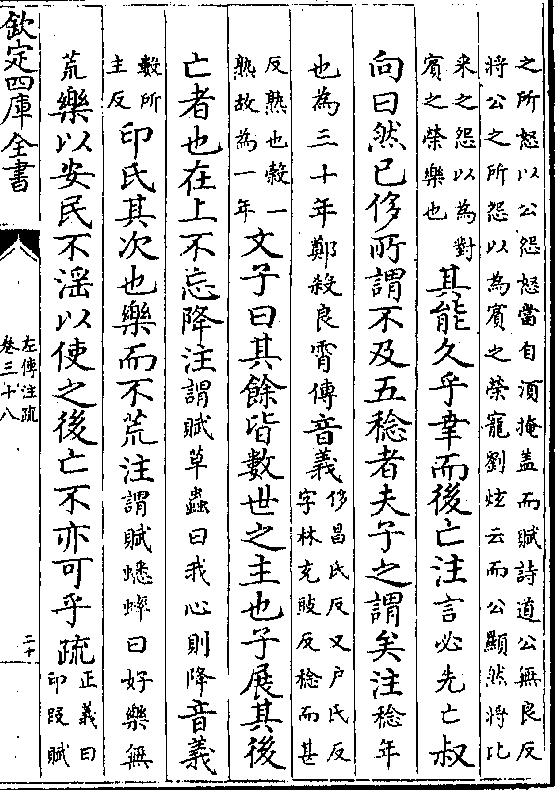 之所怒以公怨怒當自須掩盖而賦詩道公無良反
將公之所怨以為賓之榮寵劉炫云而公顯然將比
来之怨以為對
賓之榮樂也
其能久乎幸而後亡注言必先亡叔
向曰然已侈所謂不及五稔者夫子之謂矣注稔年
也為三十年鄭殺良霄傳音義
侈昌氏反又户氏反
字林充豉反稔而甚
反熟也穀一
熟故為一年
文子曰其餘皆數世之主也子展其後
亡者也在上不忘降注謂賦草蟲曰我心則降音義
數所
主反
印氏其次也樂而不荒注謂賦蟋蟀曰好樂無
荒樂以安民不淫以使之後亡不亦可乎疏
正義曰
印段賦
欽定四庫全書
左傳注疏
卷三十八
二十